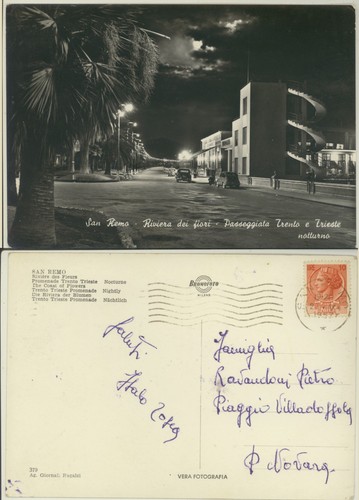 San Remo - Riviera dei fiori - Passeggiata Trento e Trieste
notturno
SAN REMO
Riviera des Fleurs
Promenade Trento Trieste Nocturne
The Coast of Flowers
Trento Trieste Promenade Nightly
Die Riviera der Blumen
Trento Trieste Promenade Nächtlich
MILANO
Saluti
Italo
Famiglia
Ravandoni Pietro
Piaggio Villadossola
P Novara
VERA FOTOGRAFIA